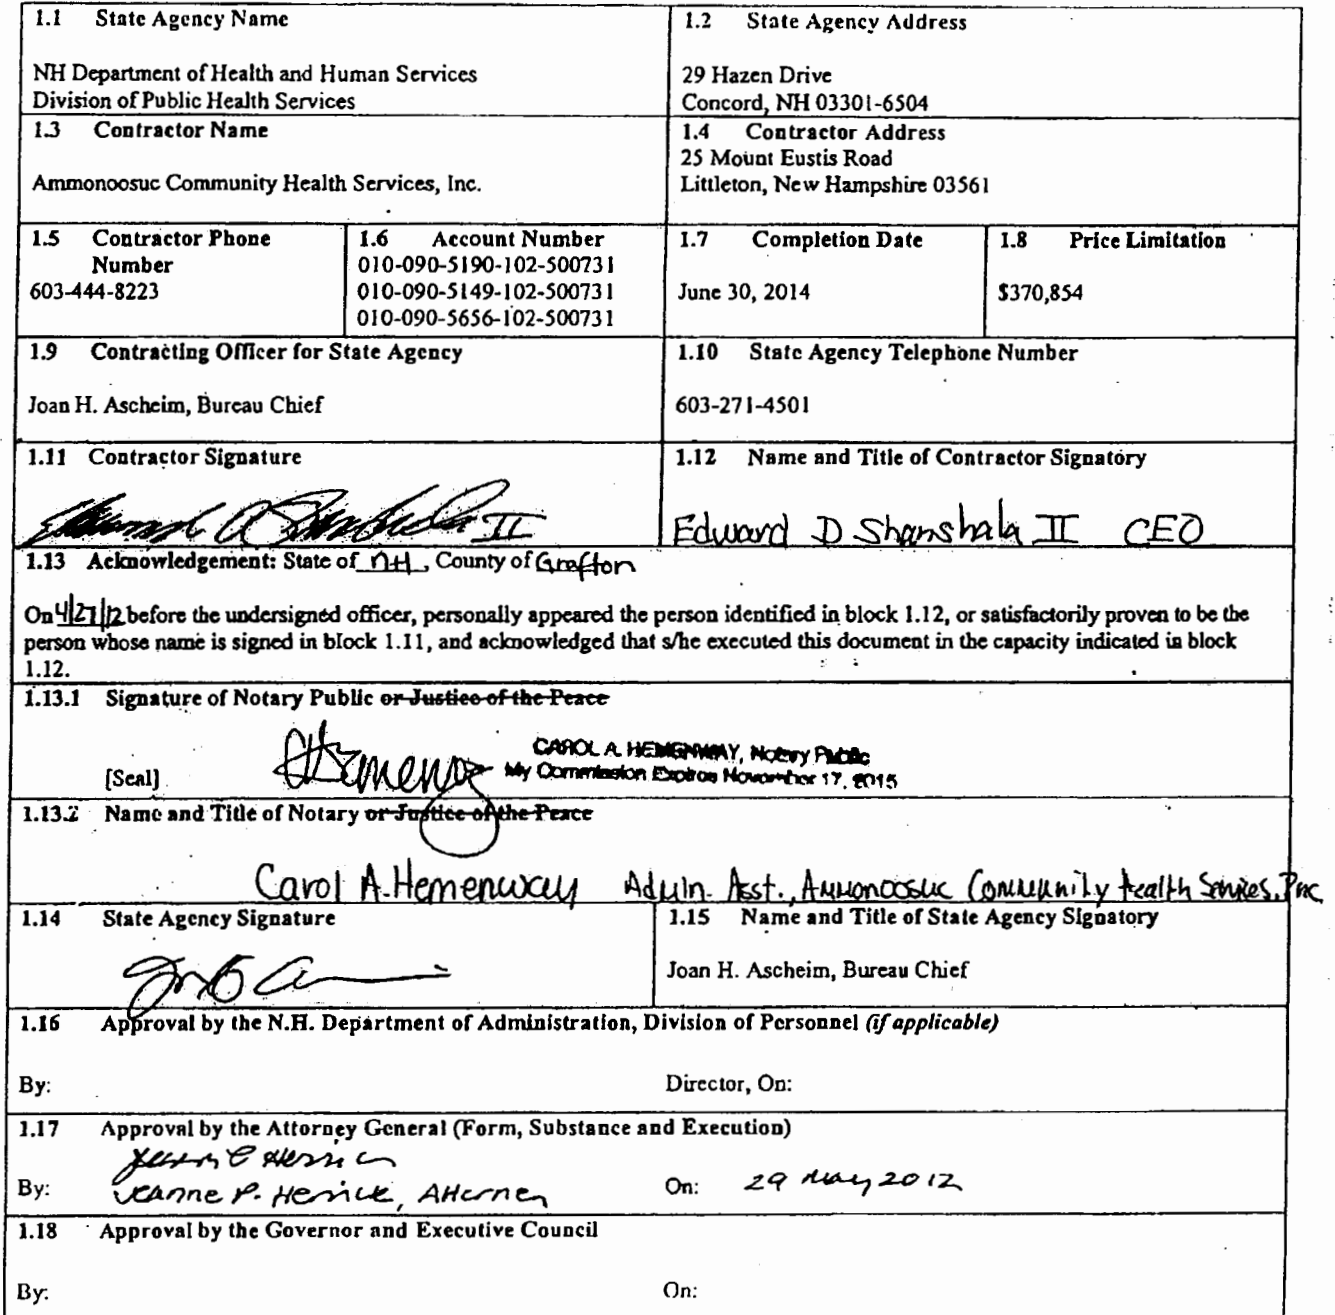 1.1 State Agency Name
NH Department of Health and Human Services
Division of Public Health Services
1.2 State Agency Address
29 Hazen Drive
Concord, NH 03301-6504
1.3 Contractor Name
Ammonoosuc Community Health Services, Inc.
1.4 Contractor Address
25 Mount Eustis Road
Littleton, New Hampshire 03561
1.5 Contractor Phone
Number
603-444-8223
1.6 Account Number
010-090-5190-102-500731
010-090-5149-102-500731
010-090-5656-102-500731
1.7 Completion Date
June 30, 2014
1.8 Price Limitation
$370,854
1.9 Contracting Officer for State Agency
Joan H. Ascheim, Bureau Chief
1.10 State Agency Telephone Number
603-271-4501
1.11 Contractor Signature
II
1.12 Name and Title of Contractor Signatory
Edward D Shanshala II CEO
1.13 Acknowledgement: State of NH, County of Grafton
On 4/27/12 before the undersigned officer, personally appeared the person identified in block 1.12, or satisfactorily proven to be the
person whose name is signed in block 1.11, and acknowledged that s/he executed this document in the capacity indicated in block
1.12.
1.13.1 Signature of Notary Public or Justice of the Peace
CAROL A. HEMENWAY, Notary Public
My Commission Expires November 17, 2015
[Seal]
1.13.2 Name and Title of Notary or Justice of the Peace
Carol A. Hemenway Admin. Asst., Ammonoosuc Community Health Services, Inc
1.14 State Agency Signature
1.15 Name and Title of State Agency Signatory
Joan H. Ascheim, Bureau Chief
1.16 Approval by the N.H. Department of Administration, Division of Personnel (if applicable)
By: Director, On:
1.17 Approval by the Attorney General (Form, Substance and Execution)
By: Jeanne P. Herrick, Attorney On: 29 May 2012
1.18 Approval by the Governor and Executive Council
By: On: